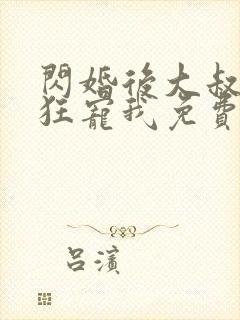 閃婚後大叔
狂寵我免費
呂濱